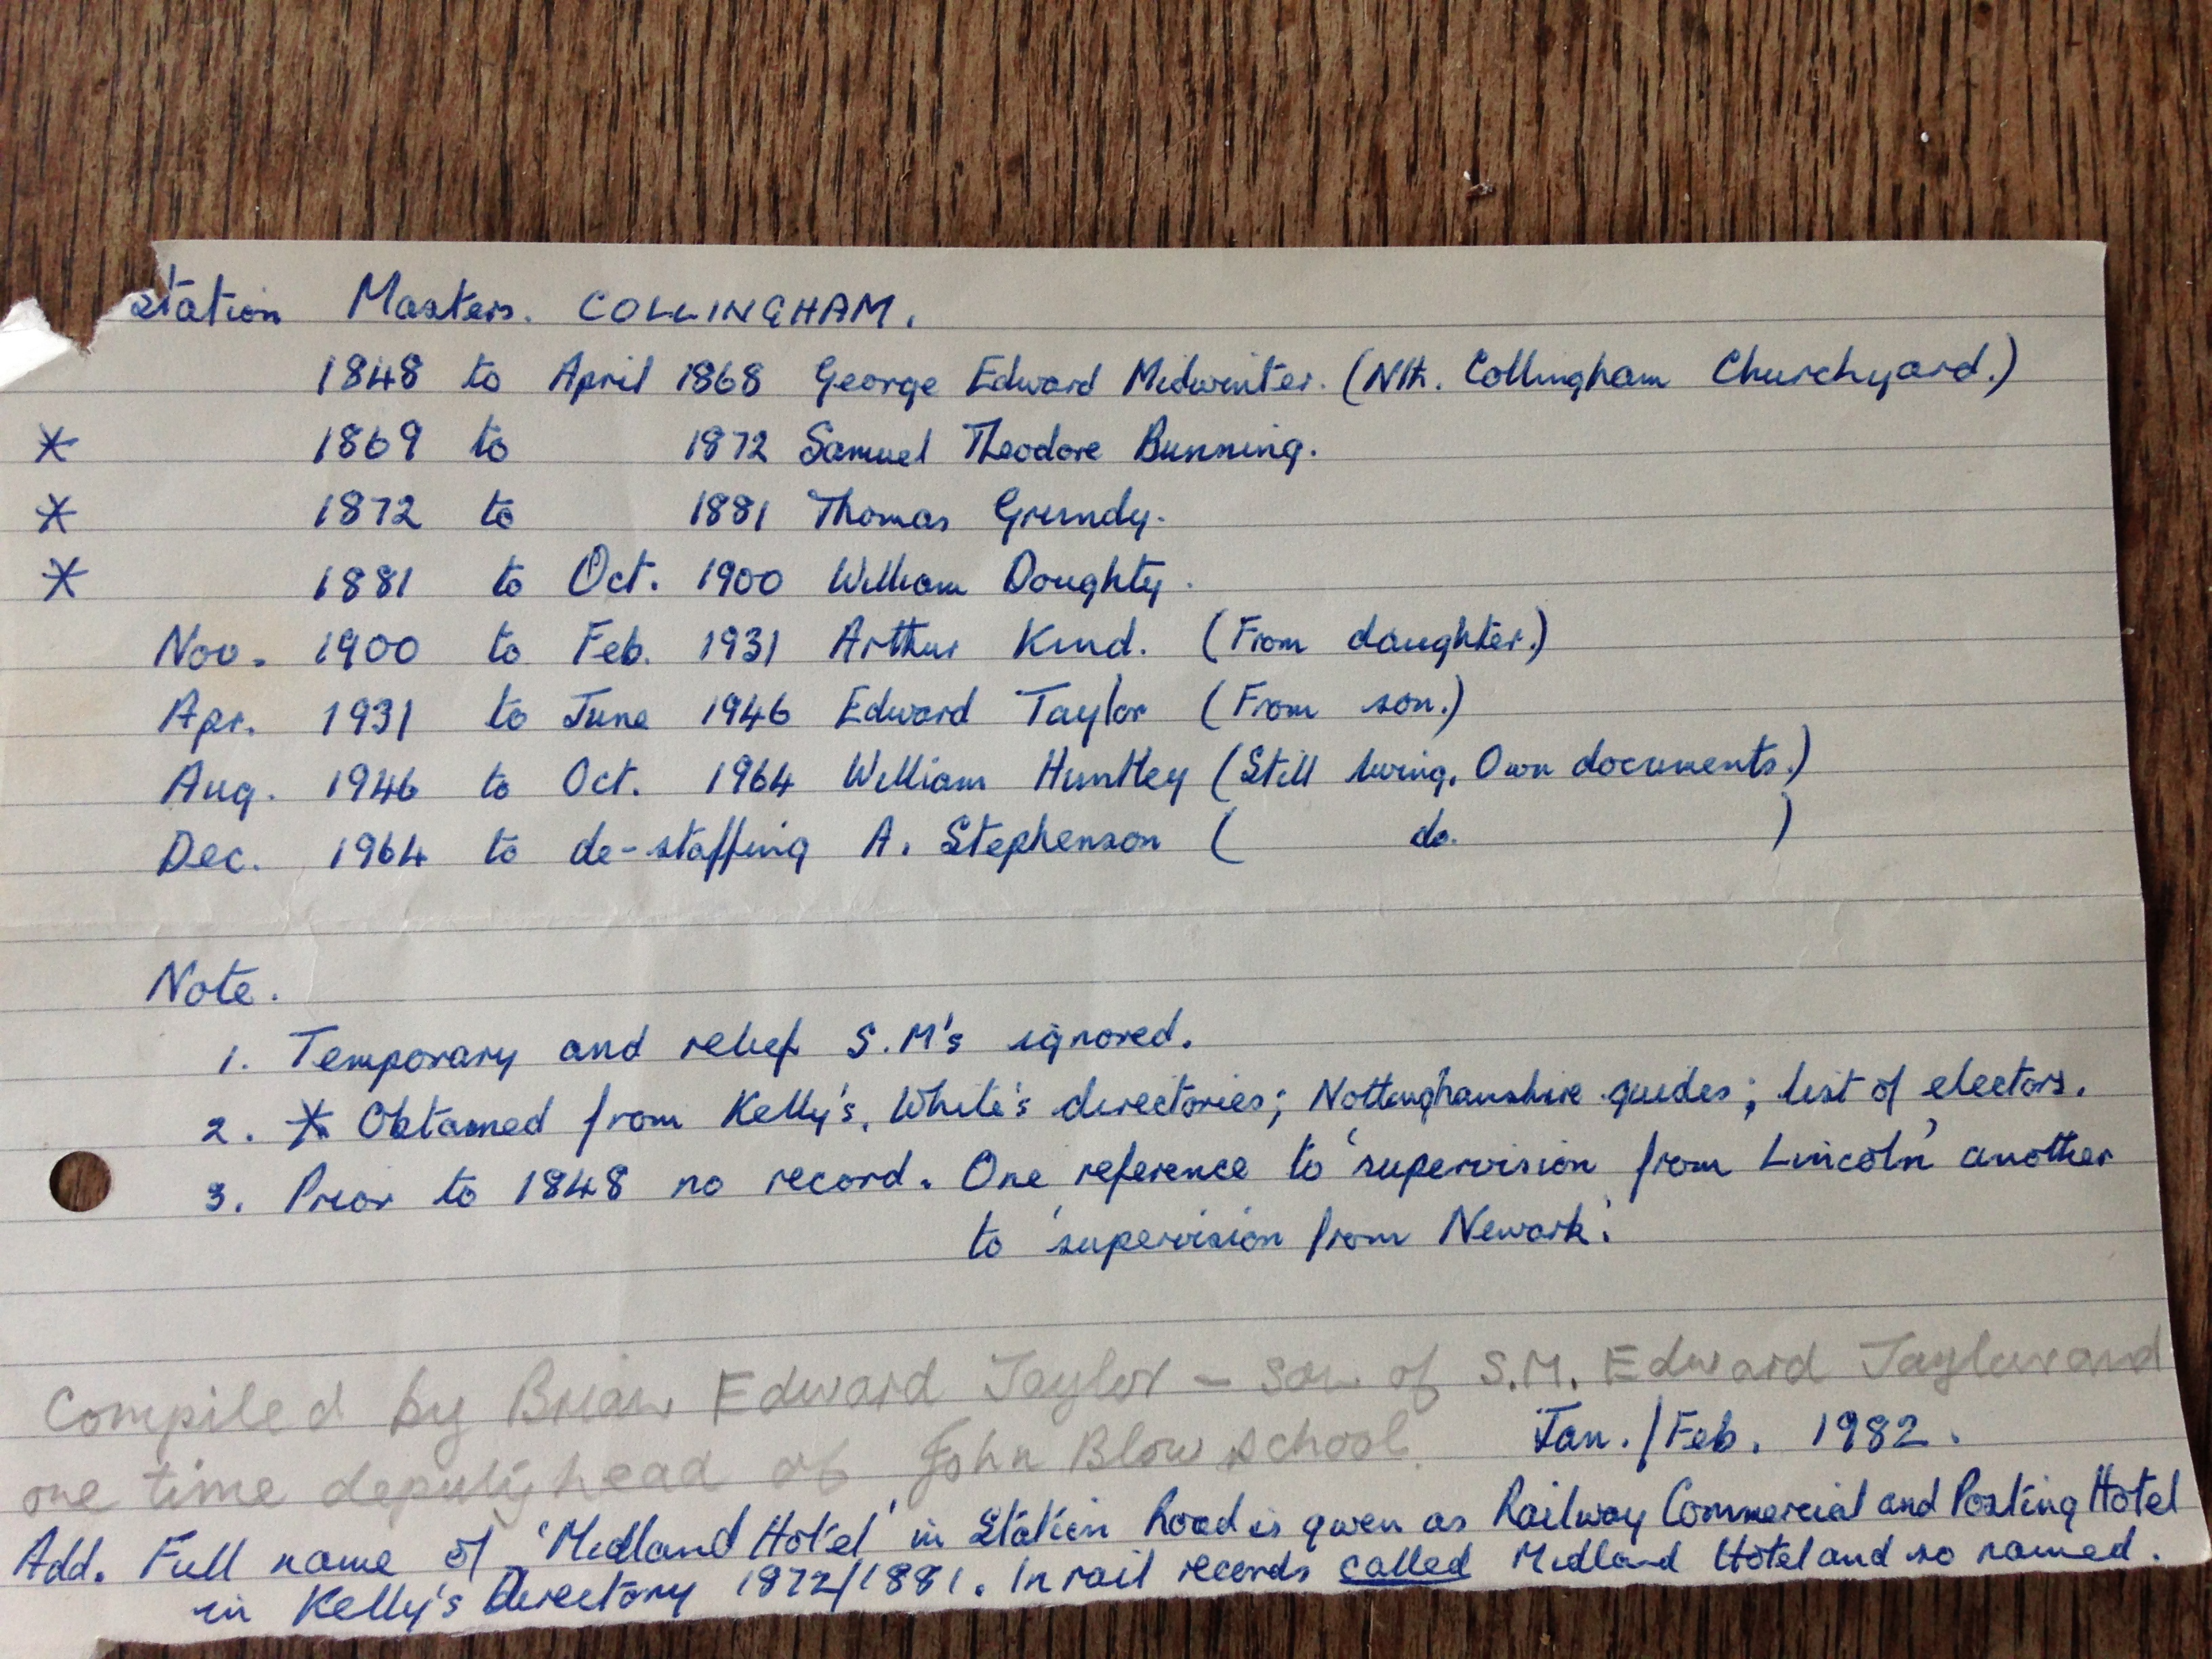 Station Masters. COLLINGHAM.
1848 to April 1868 George Edward Midwinter. (Nth. Collingham Churchyard.)
* 1869 to 1872 Samuel Theodore Bunning.
* 1872 to 1881 Thomas Grundy.
* 1881 to Oct. 1900 William Doughty.
Nov. 1900 to Feb. 1931 Arthur Kind. (From daughter.)
Apr. 1931 to June 1946 Edward Taylor (From son.)
Aug. 1946 to Oct. 1964 William Huntley (Still living. Own documents.)
Dec. 1964 to de-staffing A. Stephenson ( do. )
Note.
1. Temporary and relief S.M's ignored.
2. * Obtained from Kelly's, White's directories; Nottinghamshire guides; list of electors.
3. Prior to 1848 no record. One reference to 'supervision from Lincoln' another
to 'supervision from Newark.'
Compiled by Brian Edward Taylor - son of S.M. Edward Taylor and
one time deputy head of John Blow school. Jan./Feb. 1982.
Add. Full name of 'Midland Hotel' in Station Road is given as Railway Commercial and Posting Hotel
in Kelly's Directory 1872/1881. In rail records called Midland Hotel and so named.